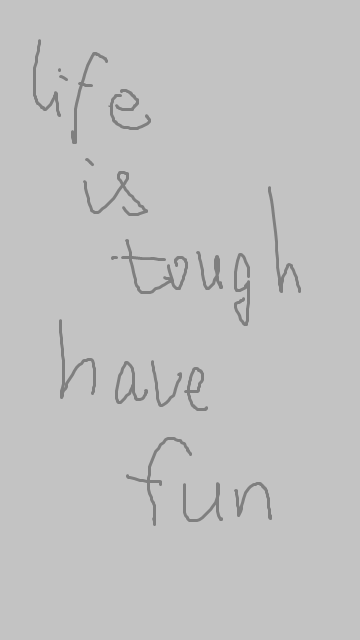 life
is
tough
have
fun